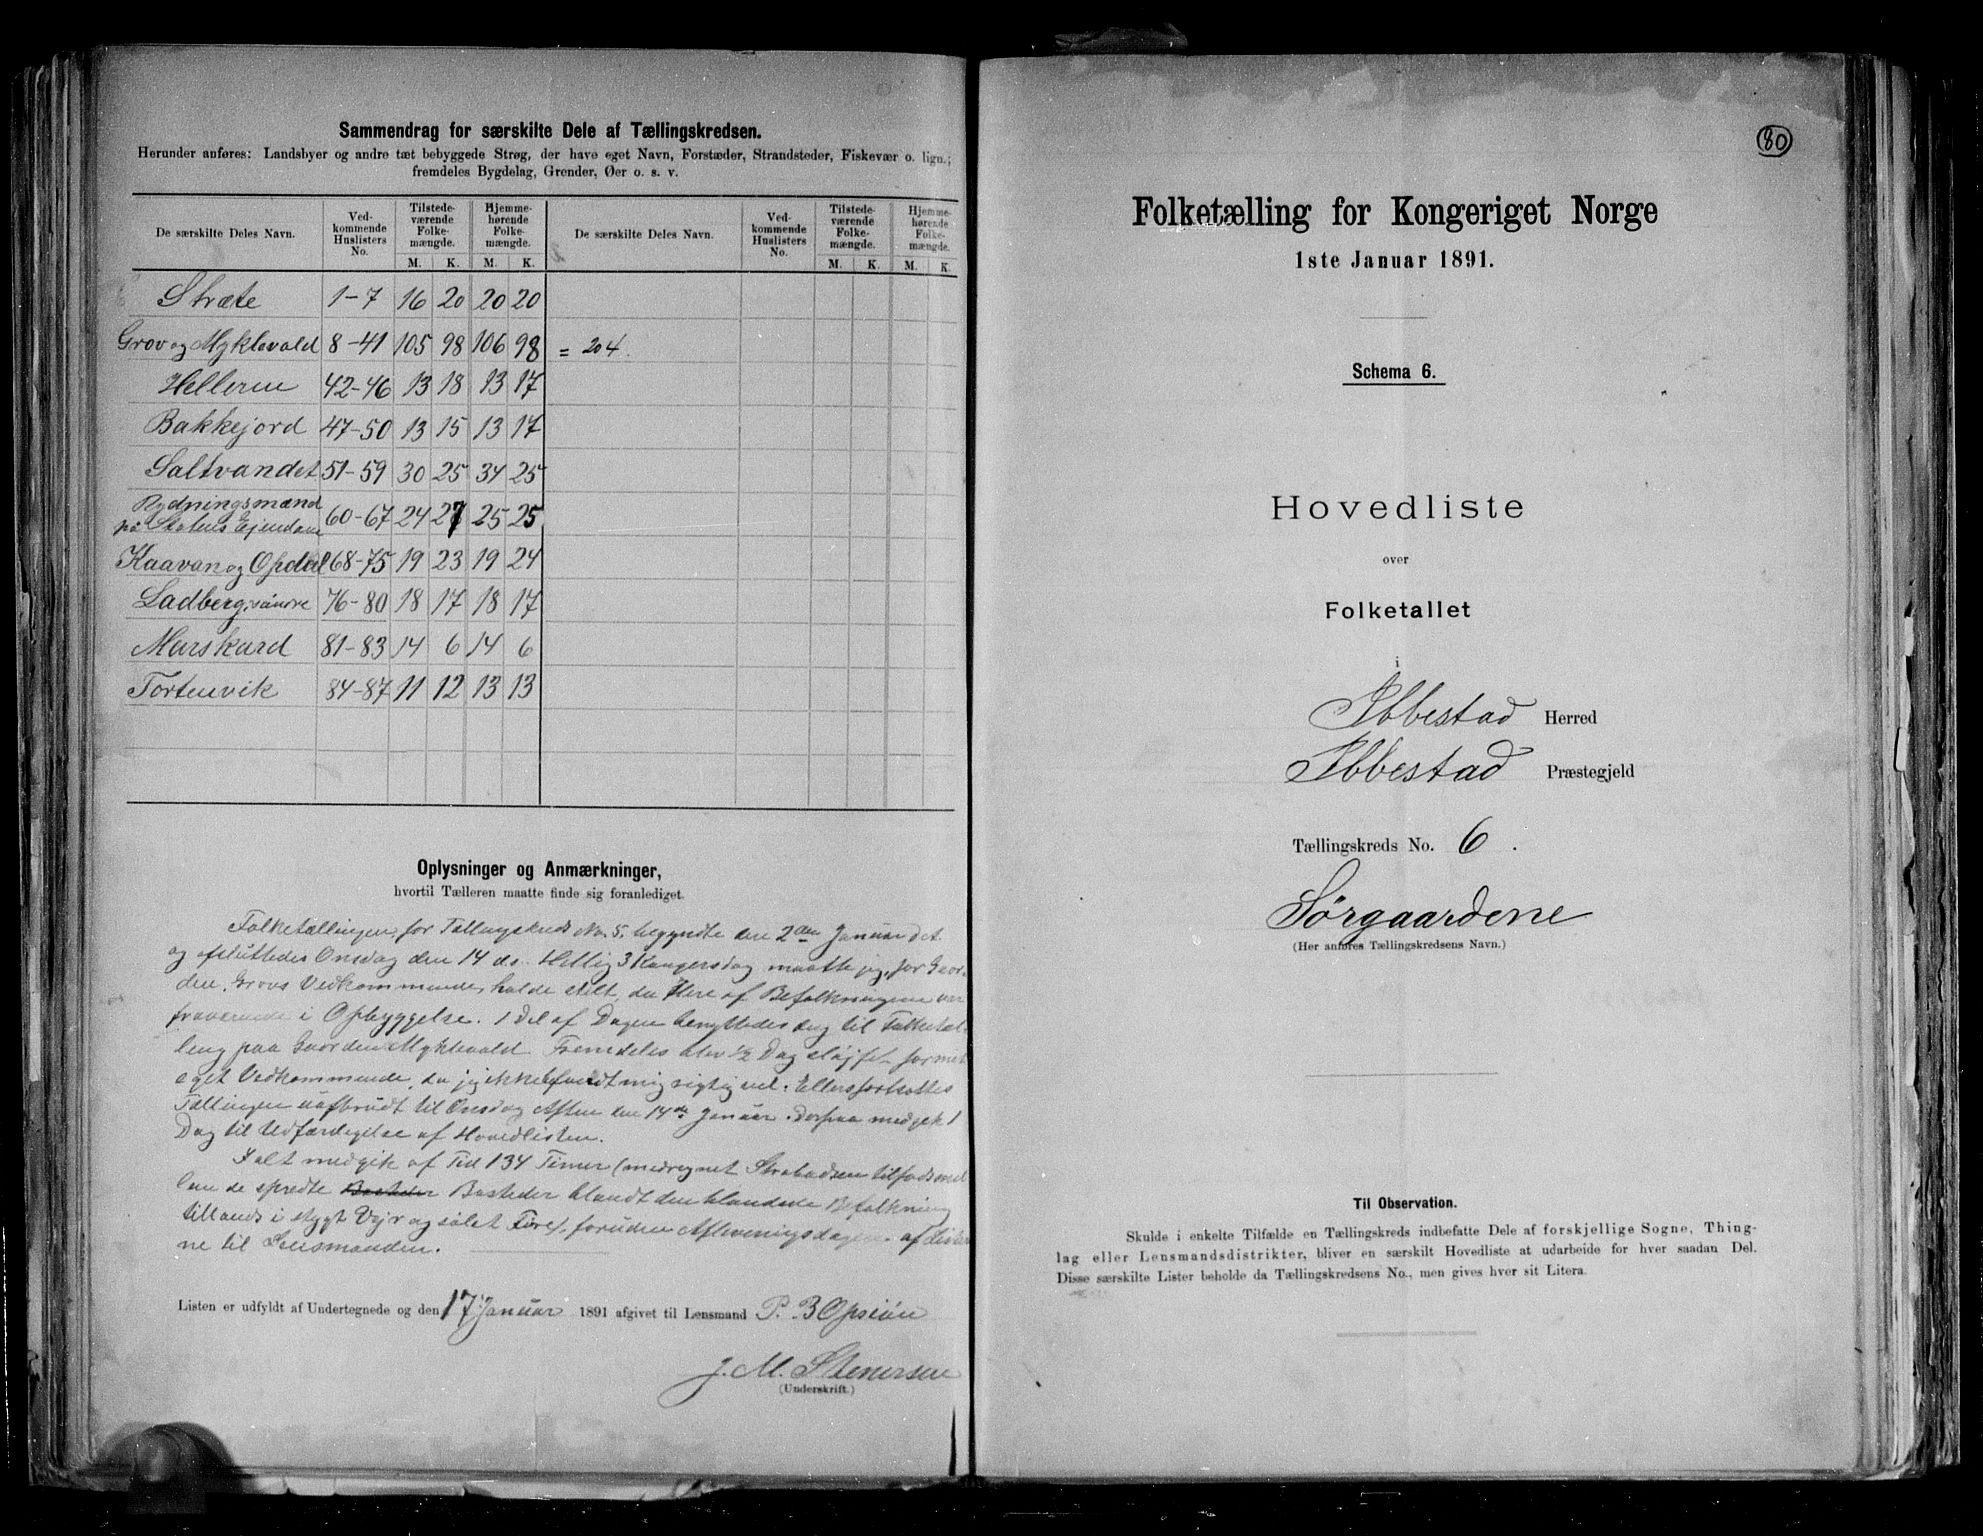 Sammendrag for særskilte Dele af Tællingskredsen.
Herunder anføres: Landsbyer og andre tæt bebyggede Strøg, der have eget Navn, Forstæder, Strandsteder, Fiskevær o. lign.;
fremdeles Bygdelag, Grender, Øer o. s. v.
De særskilte Deles Navn. Ved-kommende Huslisters No. Tilstede-værende Folke-mængde. Hjemme-hørende Folke-mængde. De særskilte Deles Navn. Ved-kommende Huslisters No. Tilstede-værende Folke-mængde. Hjemme-hørende Folke-mængde.
M. K. M. K. M. K. M. K.
Stræte 1-7 16 20 20 20
Grov og Myklevold 8-41 105 98 106 98 = 204.
Helleren 42-46 13 18 13 17
Bakkejord 47-50 13 15 13 17
Saltvandet 51-59 30 25 34 25
Rydningsmænd
paa Statens Ejendom 60-67 24 27 25 25
Kaavan og Opdal 68-75 19 23 19 24
Ladberg 76-80 18 17 18 17
Marskard 81-83 14 6 14 6
Tortenvik 84-87 11 12 13 13
Oplysninger og Anmærkninger,
hvortil Tælleren maatte finde sig foranlediget.
Folketællingen for Tællingskreds No. 5. begyndte den 2den Januar
og afsluttedes Onsdag den 14 ds. Hellig 3 Kongersdag maatte jeg, for Gaar-
den Grovs Vedkommende, holde stilt, da flere af Befolkningen var
fraværende i Opbyggelse. 1 Del af Dagen benyttedes dog til Folketæl-
ling paa Gaarden Myklevold. Fremdeles blev 1/2 Dag sløjfet for mit
eget Vedkommende, da jeg ikke befandt mig rigtig vel. Ellers fortsattes
Tællingen uafbrudt til Onsdag Aften den 14de Januar. Derpaa medgik 1
Dag til Udfærdigelse af Hovedlisten.
I alt medgik af Tid 134 Timer (medregnet Strabadsen tilfods mel-
lem de spredte Bosteder blandt den blandede Befolkning
tillands i stygt Vejr og sølet Føre), foruden Afleveringsdagen af Lister-
ne til Lensmanden.
Listen er udfyldt af Undertegnede og den 17 Januar 1891 afgivet til Lensmand P. B Opsiøn
J. M. Stenersen
(Underskrift.)
80
Folketælling for Kongeriget Norge
1ste Januar 1891.
Schema 6.
Hovedliste
over
Folketallet
i
Ibbestad Herred
Ibbestad Præstegjeld
Tællingskreds No. 6.
Sørgaardene
(Her anføres Tællingskredsens Navn.)
Til Observation.
Skulde i enkelte Tilfælde en Tællingskreds indbefatte Dele af forskjellige Sogne, Thing-
lag eller Lensmandsdistrikter, bliver en særskilt Hovedliste at udarbeide for hver saadan Del.
Disse særskilte Lister beholde da Tællingskredsens No., men gives hver sit Litera.